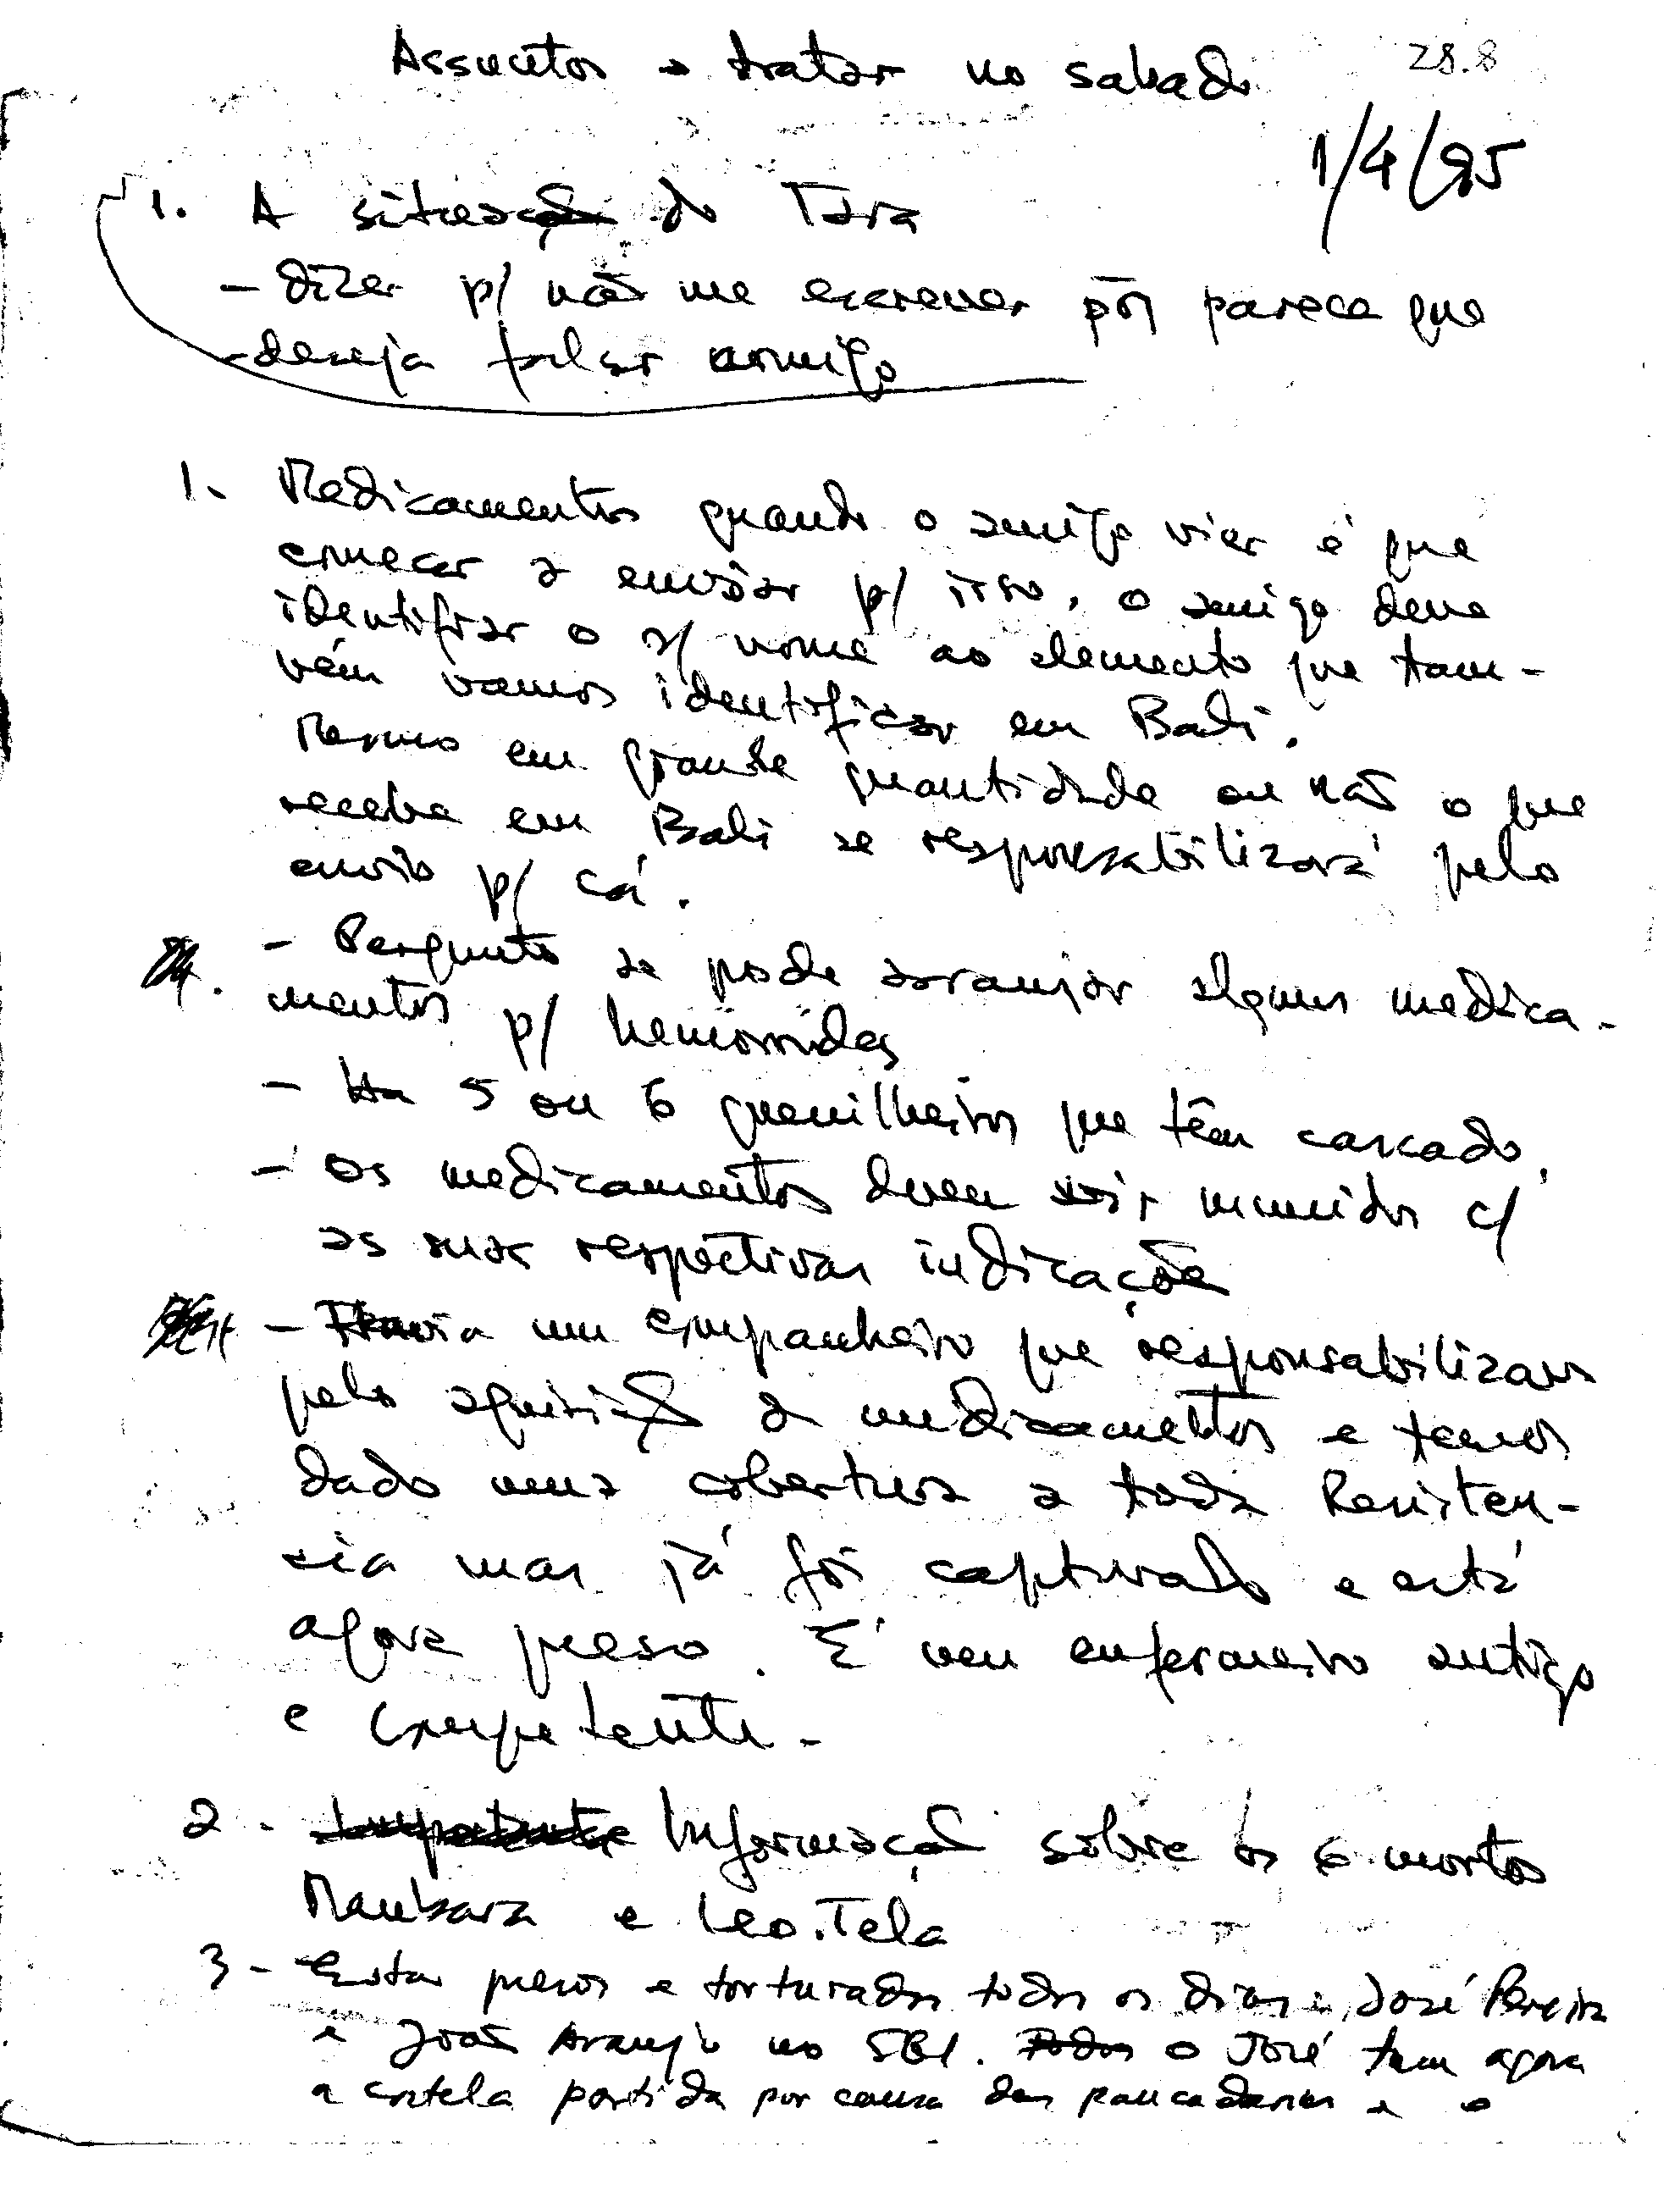 Assuntos a tratar no sabado
28.8
1/4/95
1. A situação do Tara
- Dizer p/ não me escrever pois parece que
deseja falar comigo
1. Medicamentos quando o amigo vier é que
começar a enviar p/ isso, o amigo deve
identificar o s/ nome ao elemento que tam-
bém vamos identificar em Bali.
Mesmo em grande quantidade ou não o que
recebe em Bali se responsabilizará pelo
envio p/ cá.
- Pergunto se pode arranjar alguns medica-
mentos p/ hemorroidas
- Ha 5 ou 6 guerrilheiros que têm cascado.
- Os medicamentos devem vir munidos c/
as suas respectivas indicações
- Havia um companheiro que responsabilizava
pela aquisição de medicamentos e temos
dado uma cobertura a toda Resisten-
cia mas já foi capturado e está
agora preso. É um enfermeiro antigo
e competente.
2. Informação sôbre os 6 mortos
Maubara e Leo.Tela
3- Estão presos e torturados todos os dias, José Pereira
e João Araujo no SGI. Todos o José tem agora
a costela partida por causa das pancadarias e o